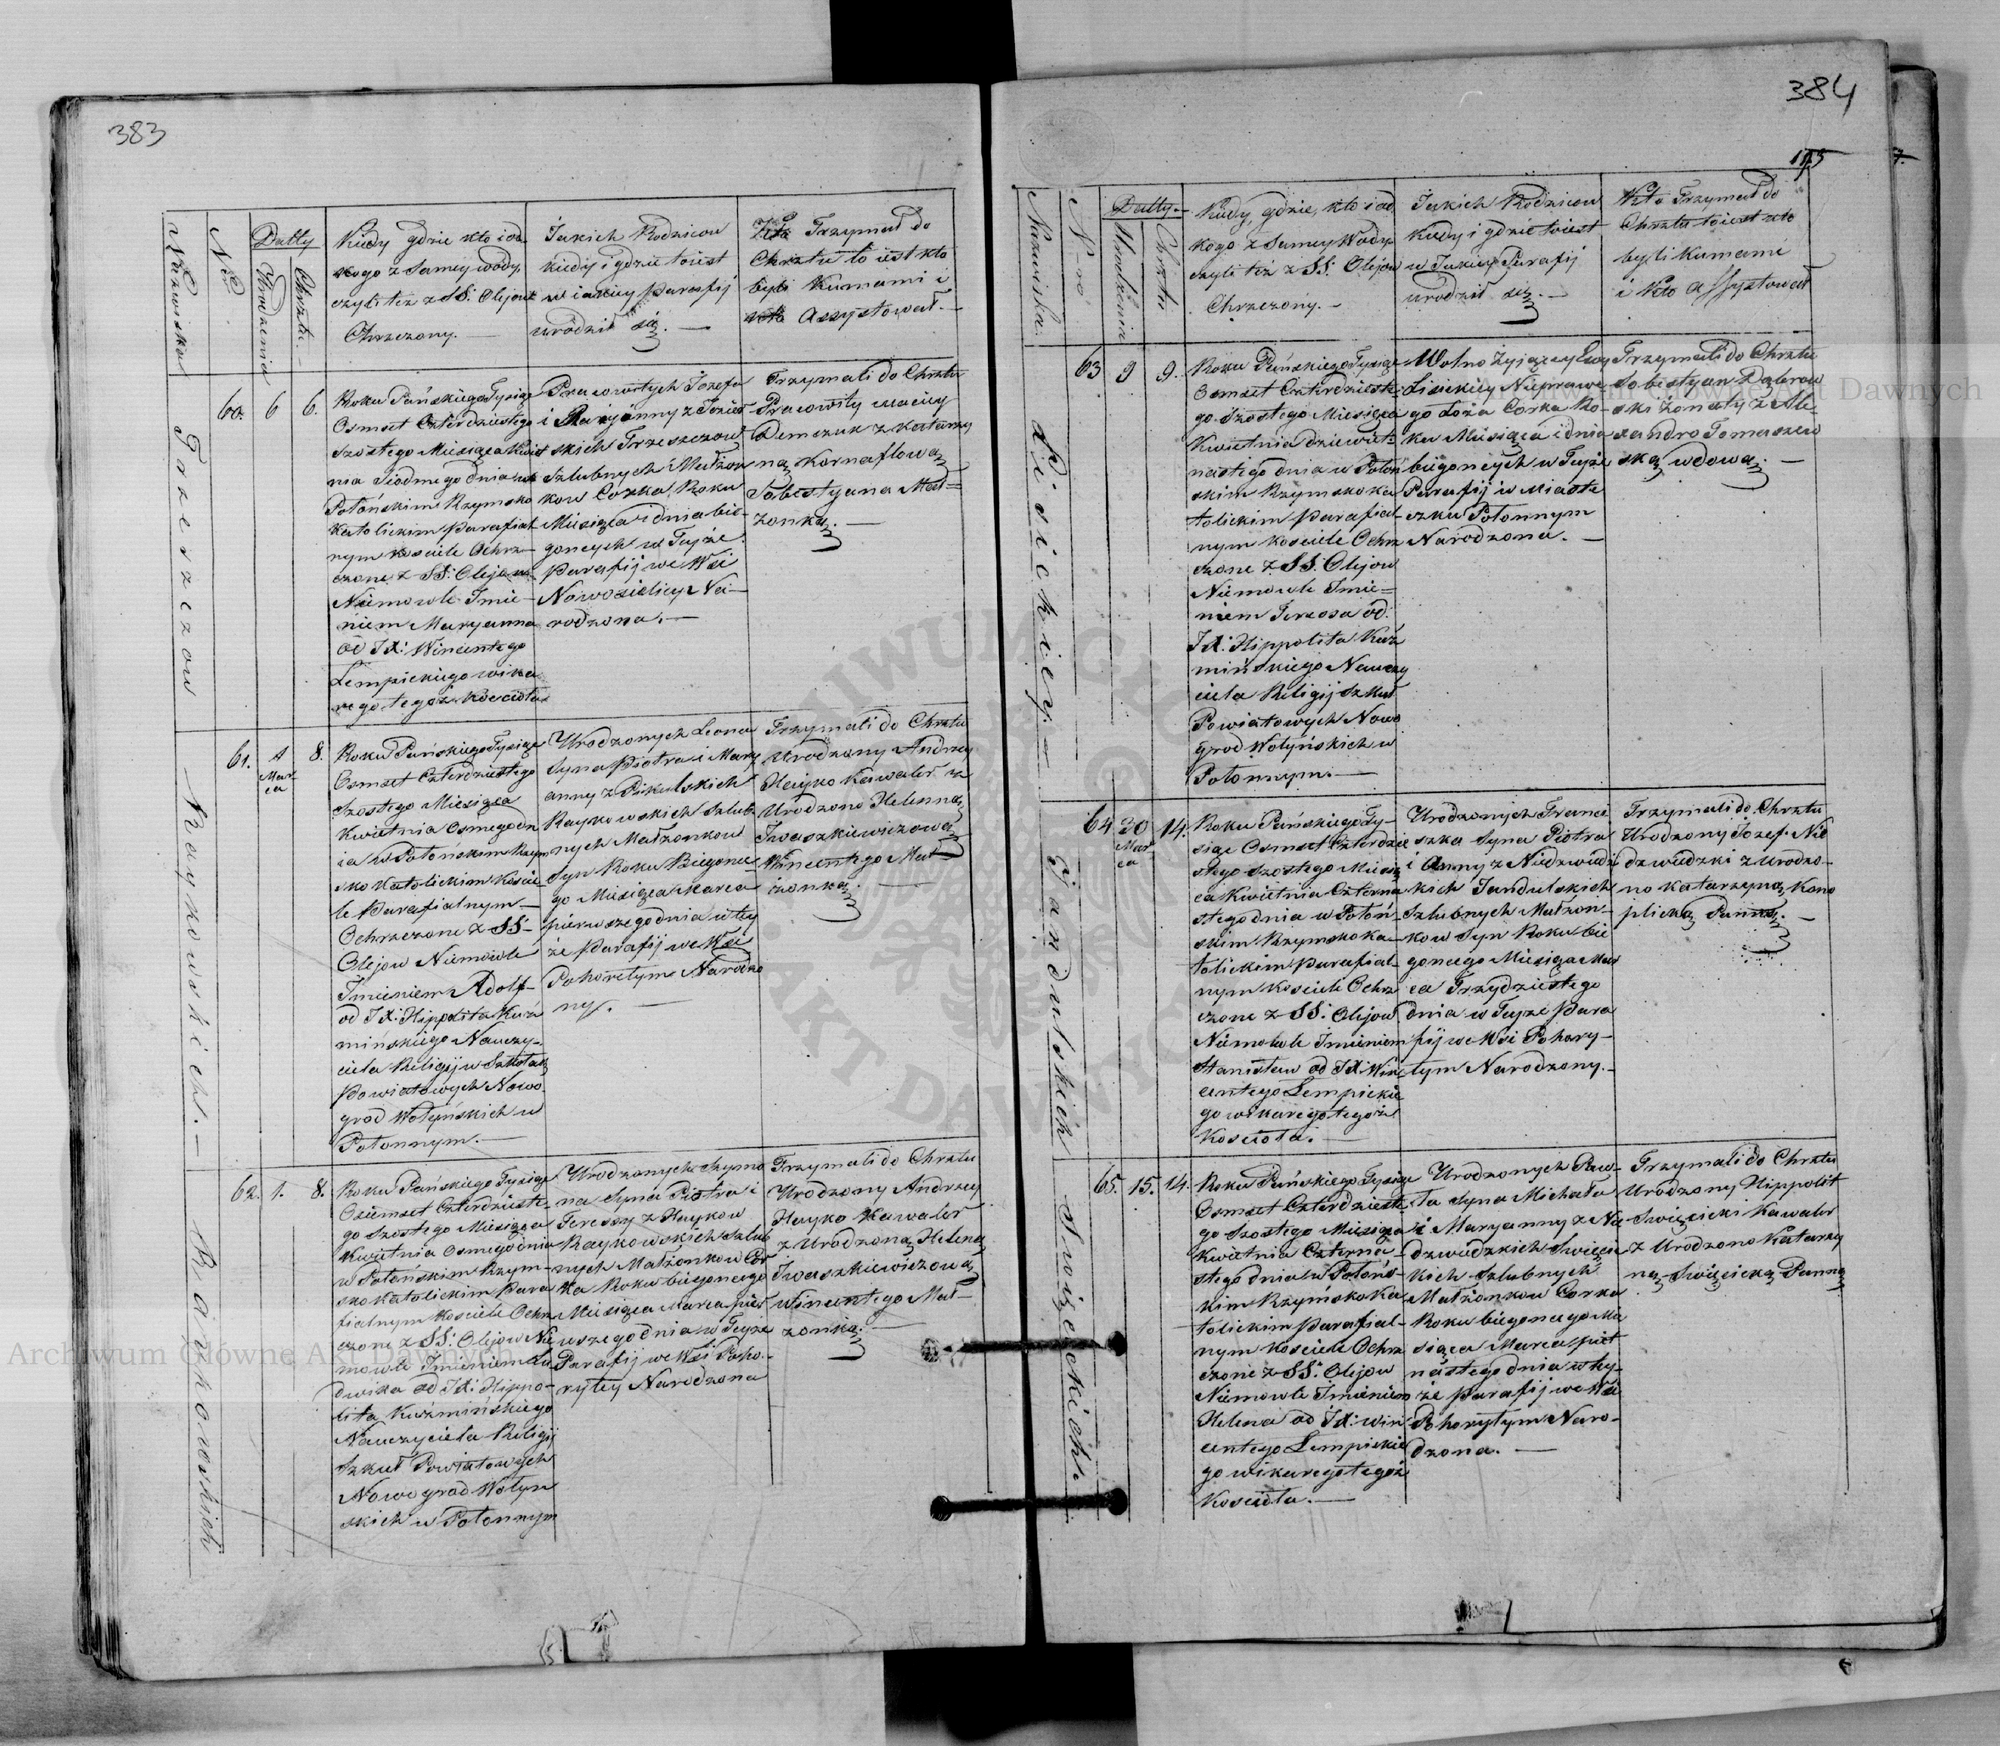 383
Nazwiska
Nro
Datty
Urodzenia
Chrztu
Kiedy gdzie kto i od
kogo z Samey wody
czyli też z SS. Olejow
Chrzczony. —
Jakich Rodzicow
kiedy i gdzie toiest
w iakiey Parafij
urodził się. —
Kto Trzymał do
Chrztu to iest kto
byli Kumami i
kto Assystował. —
Trzeszczow
60. 6 6.
Roku Pańskiego Tysiąc
Osmset Czterdziestego
Szostego Miesiąca Kwiet
nia Siodmego dnia w
Połońskim Rzymsko
Katolickim Parafial
nym Kosciele Ochrz
czone z SS. Olejow
Niemowle Imie
niem Maryanna
od JX: Wincentego
Lempickiego wika
rego tegoż Kosciola
Pracowitych Jozefa
i Maryanny z
skich Trzeszczow
Szlubnych Małżon
kow Corka Roku
Miesiąca i dnia bie
goncych w Tejże
Parafij we Wsi
Nowosielicy Na
rodzona. —
Trzymali do Chrztu
Pracowity Maciey
Demczuk z Katarzy
ną Kornaflową
Sobestyana Mał
żonką. —
Raykowskich. —
61. 1 Mar
ca 8.
Roku Pańskiego Tysiąc
Osmset Czterdziestego
Szostego Miesiąca
Kwietnia Osmego dn
ia w Połońskim Rzym
sko Katolickim Koscie
le Parafialnym
Ochrzczone z SS.
Olejow Niemowle
Imieniem Adolf
od JX: Hippolita Kuź
minskiego Nauczy
ciela Religij w Szkołach
Powiatowych Nowo
grod Wołyńskich w
Połonnym. —
Urodzonych Leona
Syna Piotra i Mary
anny z Pikulskich
Raykowskich Szlub
nych Małżonkow
Syn Roku Biegące
go Miesiąca Marca
pierwszego dnia w tey
że Parafij we Wsi
Pohorełym Narodzo
ny. —
Trzymali do Chrztu
Urodzony Andrzey
Heyko Kawaler z
Urodzono Helenną
Iwaszkiewiczową
Wincentego Mał
żonką. —
Raykowskich
62. 1. 8.
Roku Pańskiego Tysiąc
Osiemset Czterdzieste
go Szostego Miesiąca
Kwietnia Osmego dnia
w Połońskim Rzym
sko Katolickim Para
fialnym Kosciele Ochrz
czone z SS. Olejow Nie
mowle Imieniem Lu
dwika od JX: Hippo
lita Kuźmińskiego
Nauczyciela Religij
Szkuł Powiatowych
Nowogrod Wołyn
skich w Połonnym
Urodzonych Szymo
na Syna Piotra i
Teressy z Haykow
Raykowskich Szlub
nych Małżonkow Cor
ka Roku biegoncego
Miesiąca Marca pier
wszego dnia w Teyże
Parafij we Wsi Poho
ryłey Narodzona
Trzymali do Chrztu
Urodzony Andrzey
Hayko Kawaler
z Urodzoną Heleną
Iwaszkiewiczową
Wincentego Mał
żonką. —
384
175
7.
Nazwiska
Nro
Datty. —
Urodzenia
Chrztu
Kiedy, gdzie, kto i od
kogo z Samey Wody
czyli też z SS: Olejow
Chrzczony. —
Jakich Rodzicow
Kiedy i gdzie toiest
w Jakiey Parafij
urodził się. —
Kto Trzymał do
Chrztu toiest kto
byli Kumami
i Kto Assystował
Lisickiey. —
63 9 9.
Roku Pańskiego Tysiąc
Osmset Czterdzieste
go Szostego Miesiąca
Kwietnia dziewięt
nastego dnia w Połoń
skim Rzymsko ka
tolickim Parafial
nym Kosciele Ochrz
czone z SS. Olejow
Niemowle Imie
niem Teressa od
JX: Hippolita Kuź
mińskiego Nauczy
ciela Religij Szkuł
Powiatowych Nowo
grod Wołyńskich w
Połonnym. —
Wolno Żyjącey Ewy
Lisickiey Nieprawe
go Łoża Corka Ro
ku Miesiąca i dnia
biegoncych w Tejże
Parafij w Miaste
czku Połonnym
Narodzona. —
Trzymali do Chrztu
Sobestyan Dąbrow
ski Żonaty z Ale
xandro Tomaszew
ską wdową. —
Gjandulskich
64 30
Mar
ca 14.
Roku Pańskiego Ty
siąc Osmset Czterdzie
stego Szostego Miesią
ca Kwietnia Czterna
stego dnia w Połoń
skim Rzymsko ka
tolickim Parafial
nym Kosciele Ochrz
czone z SS. Olejow
Niemowle Imieniem
Stanisław od JX: Win
centego Lempickie
go wikarego tegoż
Kosciola. —
Urodzonych Franci
szka Syna Piotra
i Anny z Niedzwiedz
kich Jandulskich
Szlubnych Małżon
kow Syn Roku bie
goncego Miesiąca Mar
ca Trzydziestego
dnia w Tejże Para
fij we Wsi Pohory
łym Narodzony. —
Trzymali do Chrztu
Urodzony Jozef Nie
dzwiedzki z Urodzo
no Katarzyną Kono
plicką Panną. —
Swięcickich.
65. 15. 14.
Roku Pańskiego Tysiąc
Osmset Czterdzieste
go Szostego Miesiąca
Kwietnia Czterna
stego dnia w Połońs
kim Rzymsko Ka
tolickim Parafial
nym Kosciele Ochrz
czone z SS. Olejow
Niemowle Imieniem
Helena od JX: Win
centego Lempickie
go wikarego tegoż
Kosciola. —
Urodzonych Paw
ła Syna Michała
i Maryanny z Nie
dzwiedzkich Swięcic
kich Szlubnych
Małżonkow Corka
Roku biegoncego Mie
siąca Marca pięt
nastego dnia w tey
że Parafij we Wsi
Pohoryłym Naro
dzona. —
Trzymali do Chrztu
Urodzony Hippolit
Swięcicki Kawaler
z Urodzono Katarzy
ną Swięcicką Panną
Archiwum Główne Akt Dawnych
Archiwum Główne Akt Dawnych